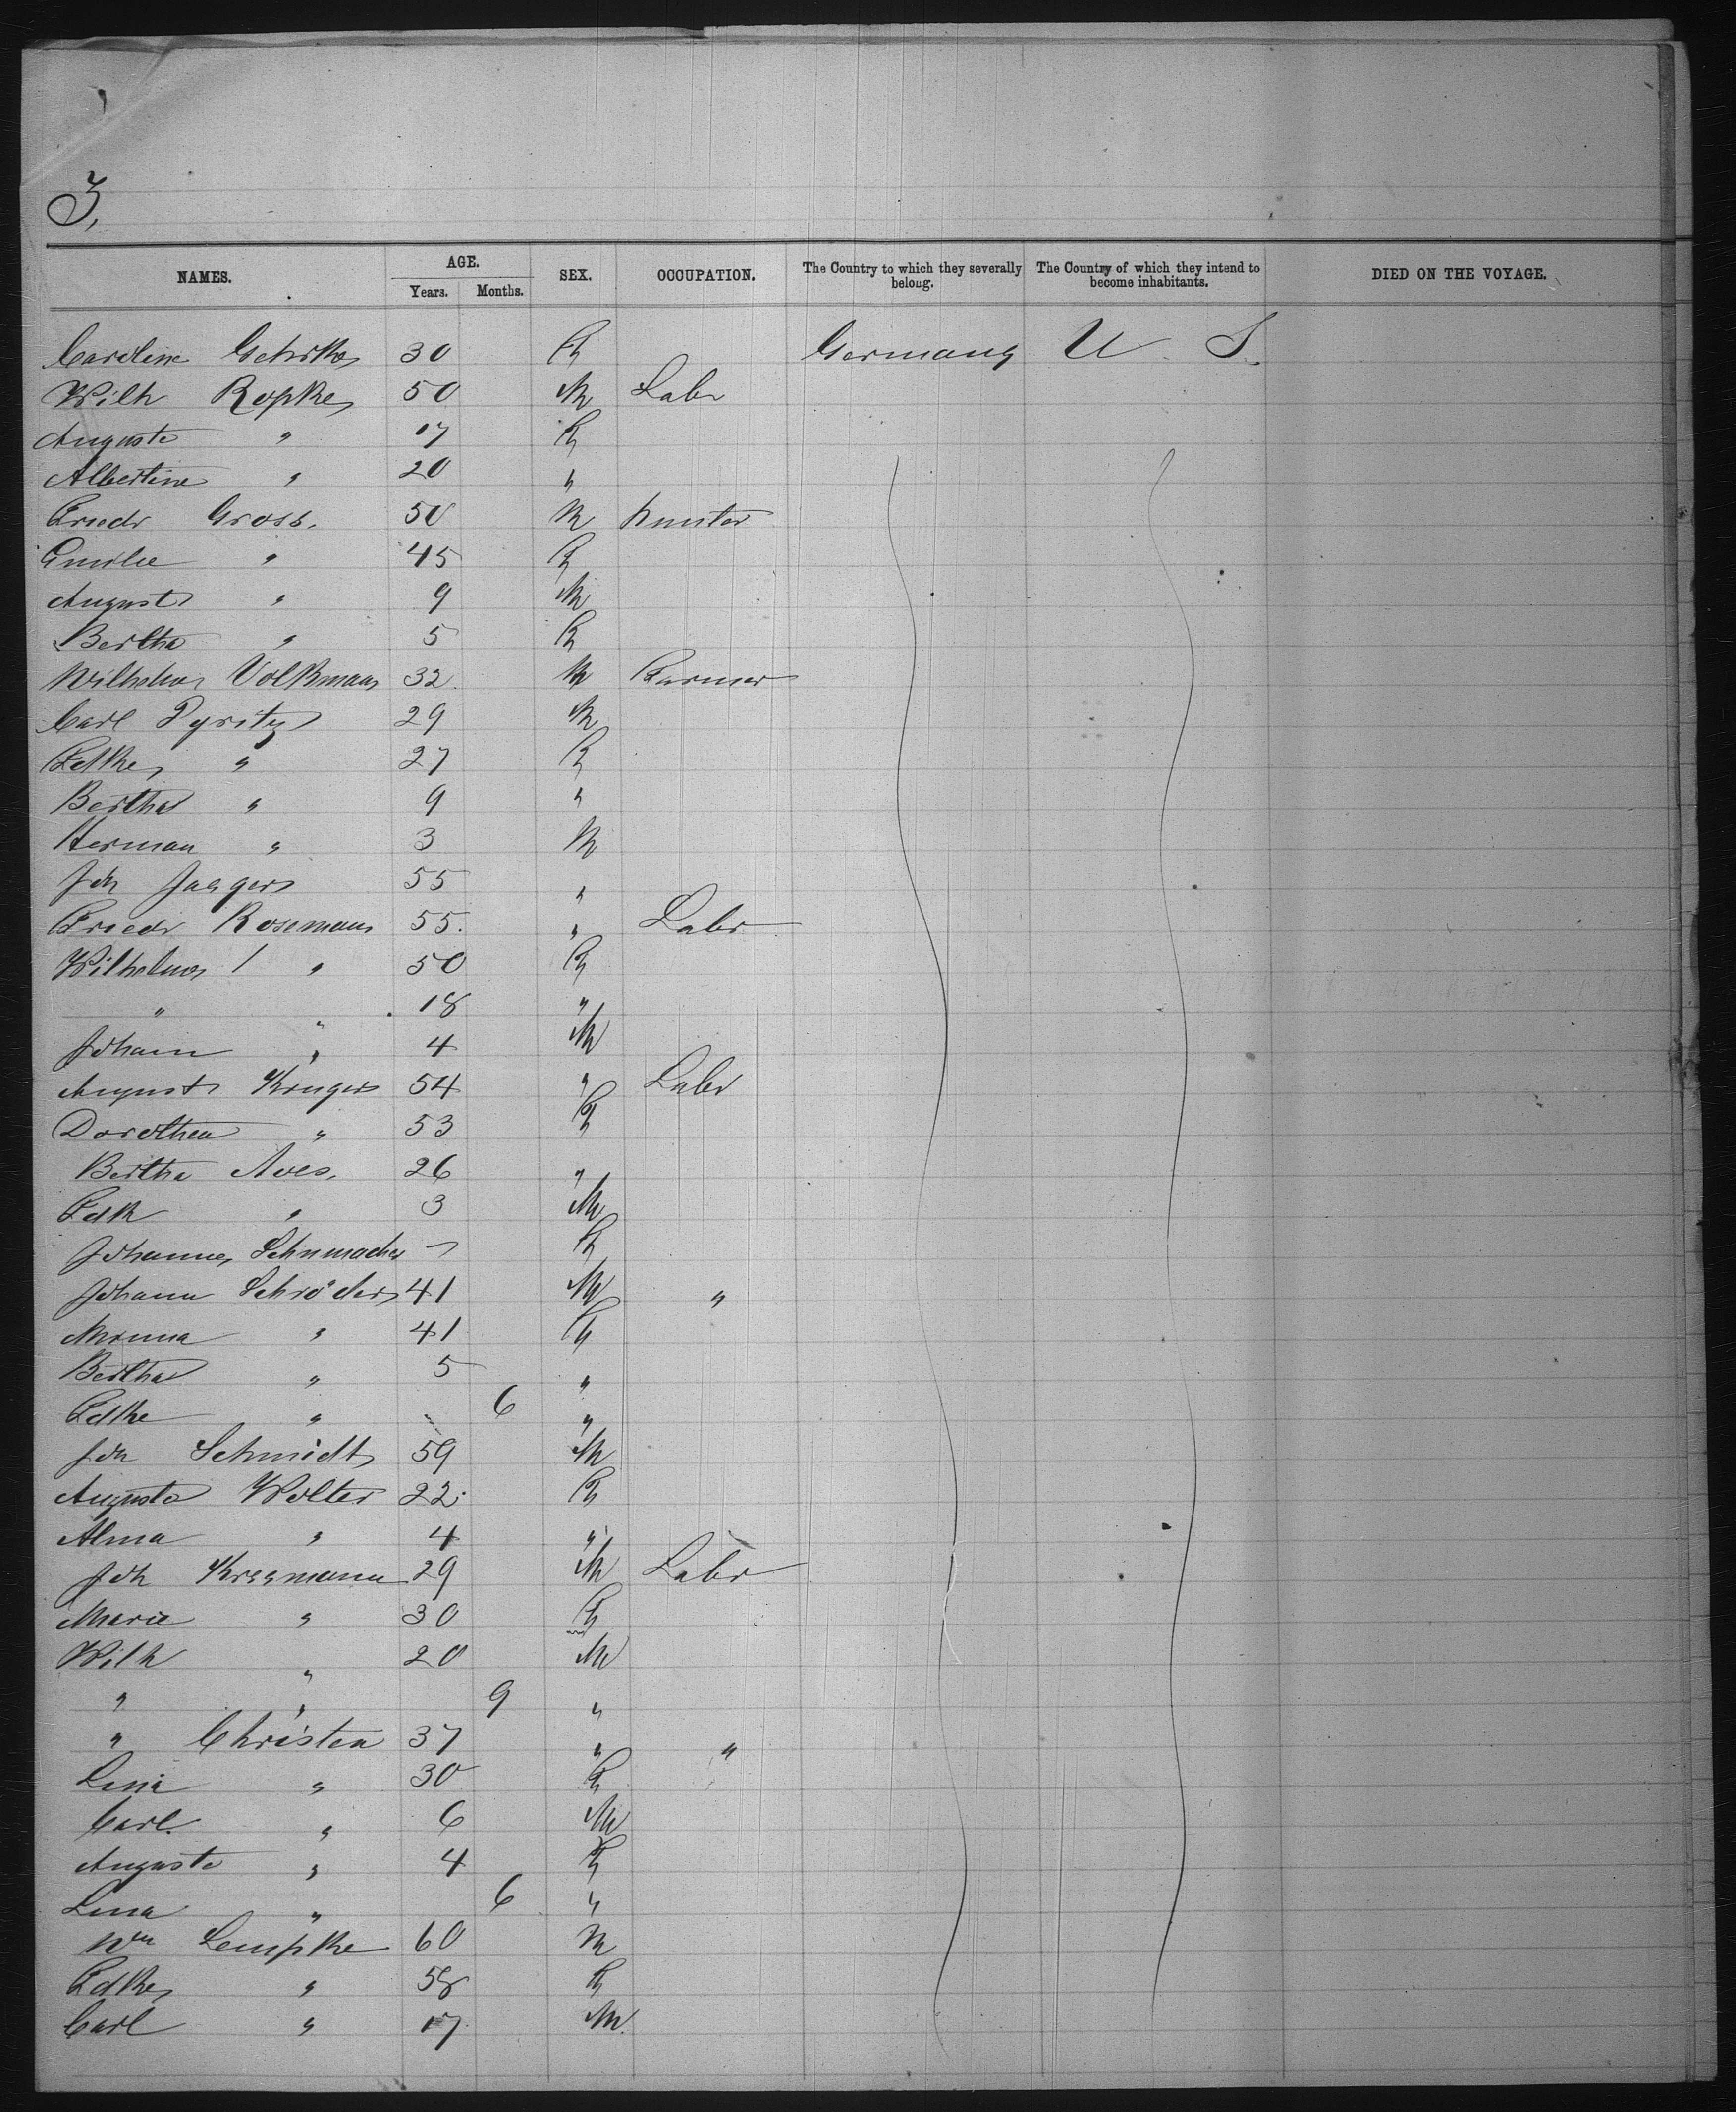 3,
NAMES. AGE. SEX. OCCUPATION. The Country to which they severally belong. The Country of which they intend to become inhabitants. DIED ON THE VOYAGE.
Years. Months.
Caroline 30 F Germany U. S.
Wilh Ropke 50 M Labr
Auguste " 17 F
Albertine " 20 "
Friedr Gross. 50 M
Emilie " 45 F
August " 9 M
Bertha " 5 F
Wilhelm Volkmann 32 M Farmer
Carl Pyritz 29 M
" 27 F
Bertha " 9 "
Herman " 3 M
Joh Jaeger 55 "
Friedr Rosemann 55. " Labr
Wilhelm " 50 F
" " 18 "
Johann " 4 M
August Kruger 54 " Labr
Dorothea " 53 F
Bertha Aves. 26 "
" 3 M
Johanne Schumacher 7 F
Johann Schröder 41 M "
Minna " 41 F
Bertha " 5 "
" 6 "
Joh Schmidt 59 M
Auguste Wolter 22 F
Alma " 4 "
Joh 29 M Labr
Marie " 30 F
Wilh " 20 M
" " 9 "
" Christen 37 " "
Lina " 30 F
Carl " 6 M
Auguste " 4 F
Lina " 6 "
Wm Lempke 60 M
" 58 F
Carl " 17 M.